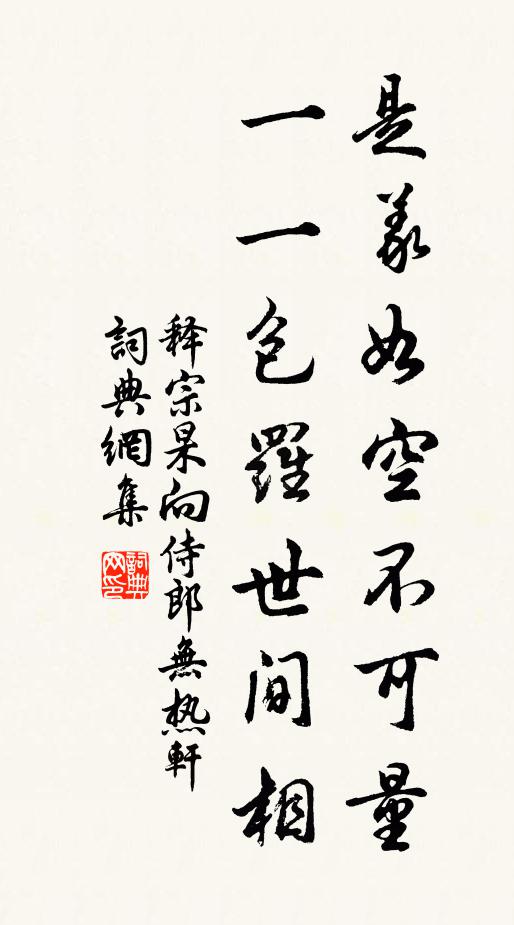 是義如空不可量
一一包羅世間相
释宗杲向侍郎無热軒
詞典網集
詞典網印